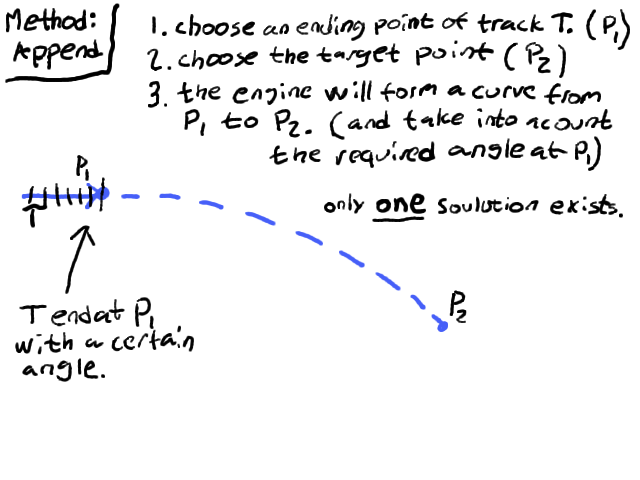 Method:
Append
1. choose an ending point of track T. (P1)
2. choose the target point (P2)
3. the engine will form a curve from
P1 to P2. (and take into acount
the required angle at P1)
P1
T
only one soulution exists.
P2
T end at P1
with a certain
angle.